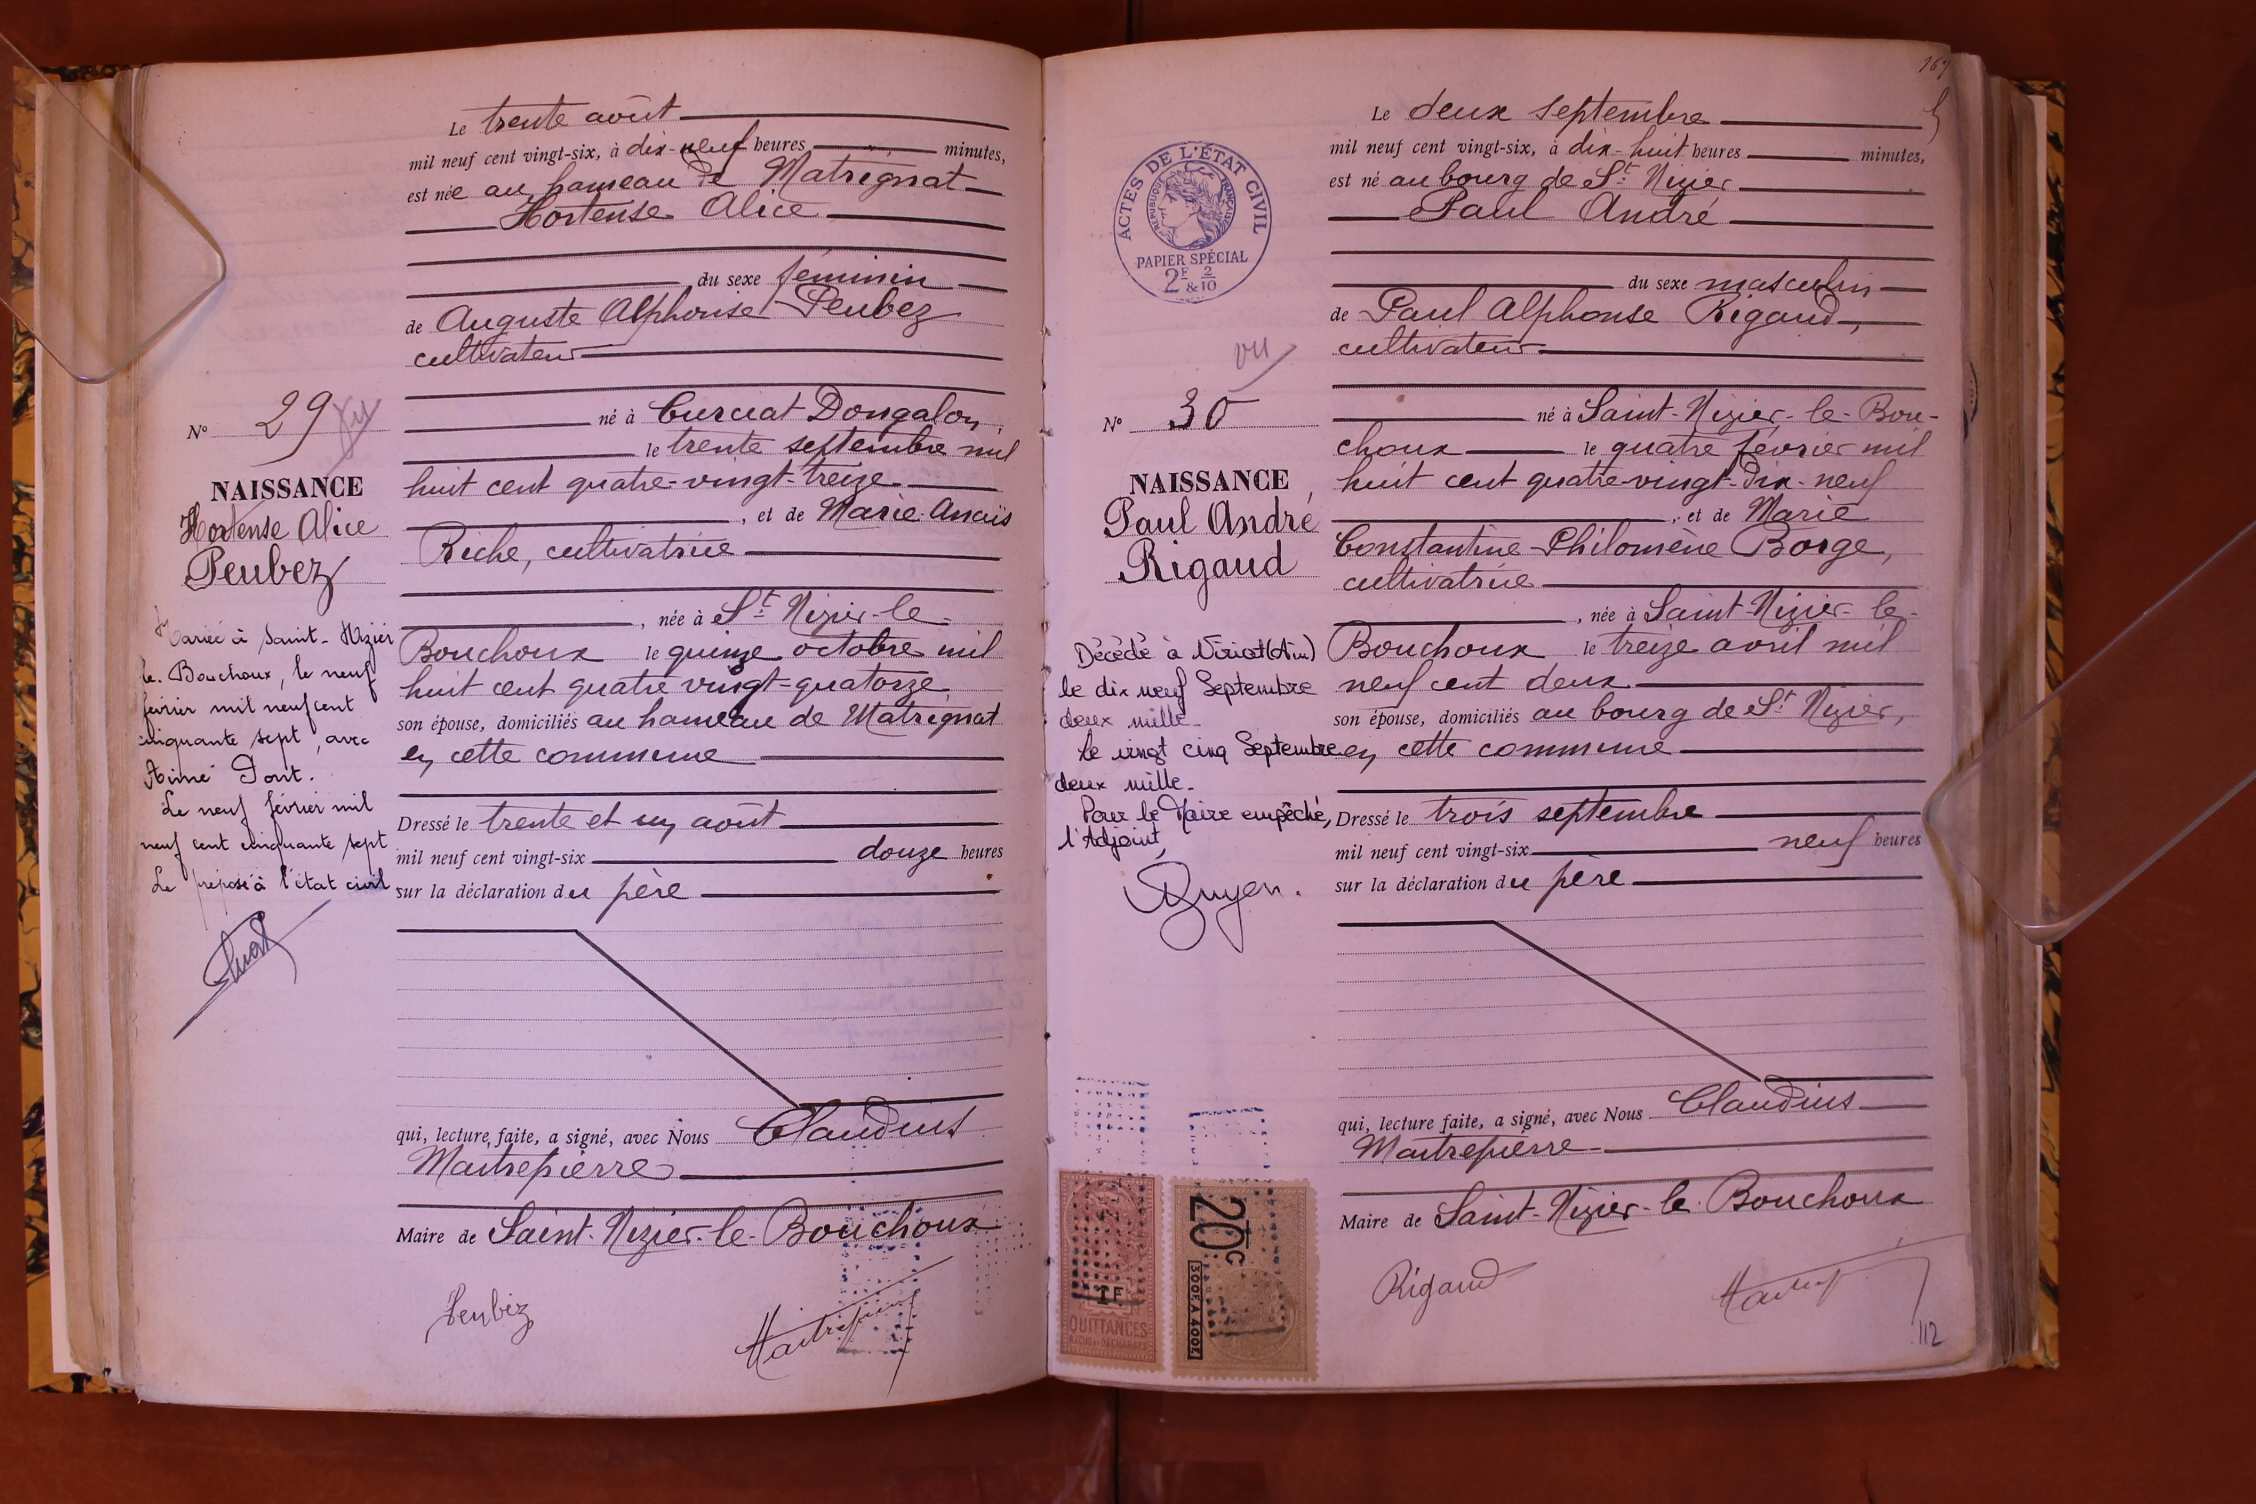 Le trente août
mil neuf cent vingt-six, à dix-neuf heures minutes,
est née au hameau de Matrignat
Hortense Alice
du sexe féminin
de Auguste Alphonse Peubez
cultivateur
né à Curciat Dongalon,
le trente septembre mil
huit cent quatre-vingt-treize
, et de Marie Anaïs
Riche, cultivatrice
, née à St Nizier-le-
Bouchoux le quinze octobre mil
huit cent quatre vingt-quatorze
son épouse, domiciliés au hameau de Matrignat
en cette commune
Dressé le trente et un août
mil neuf cent vingt-six douze heures
sur la déclaration du père
qui, lecture faite, a signé, avec Nous Claudius
Maitrepierre
Maire de Saint-Nizier-le-Bouchoux
Peubez
Maitrepierre
N° 29
vu
NAISSANCE
Hortense Alice
Peubez
Mariée à Saint-Nizier
le-Bouchoux, le neuf
février mil neuf cent
cinquante sept, avec
Aimé Pont.
Le neuf février mil
neuf cent cinquante sept
Le préposé à l'état civil
167
Le deux septembre
mil neuf cent vingt-six, à dix-huit heures minutes,
est né au bourg de St Nizier
Paul André
du sexe masculin
de Paul Alphonse Rigaud,
cultivateur
né à Saint-Nizier-le-Bou-
choux le quatre février mil
huit cent quatre-vingt-dix-neuf
, et de Marie
Constantine Philomène Borge,
cultivatrice
, née à Saint-Nizier-le-
Bouchoux le treize avril mil
neuf cent deux
son épouse, domiciliés au bourg de St Nizier,
en cette commune
Dressé le trois septembre
mil neuf cent vingt-six neuf heures
sur la déclaration du père
qui, lecture faite, a signé, avec Nous Claudius
Maitrepierre
Maire de Saint-Nizier-le-Bouchoux
Rigaud
112
ACTES DE L'ÉTAT CIVIL
RÉPUBLIQUE FRANÇAISE
PAPIER SPÉCIAL
2F & 2/10
vu
N° 30
NAISSANCE
Paul André
Rigaud
Décédé à Viriat (Ain)
le dix neuf Septembre
deux mille.
le vingt cinq Septembre
deux mille.
Pour le Maire empêché,
l'Adjoint,
1F
QUITTANCES
REÇUS ET DÉCHARGES
20c
300F A 400F